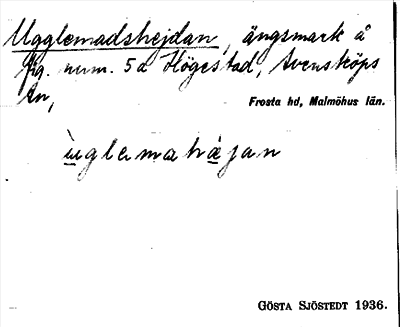 Ugglemadshejdan, ängsmark å
fig. num. 5a Högestad, Svensköps
sn,
Frosta hd, Malmöhus län.
ùglemahæjan
GÖSTA SJÖSTEDT 1936.